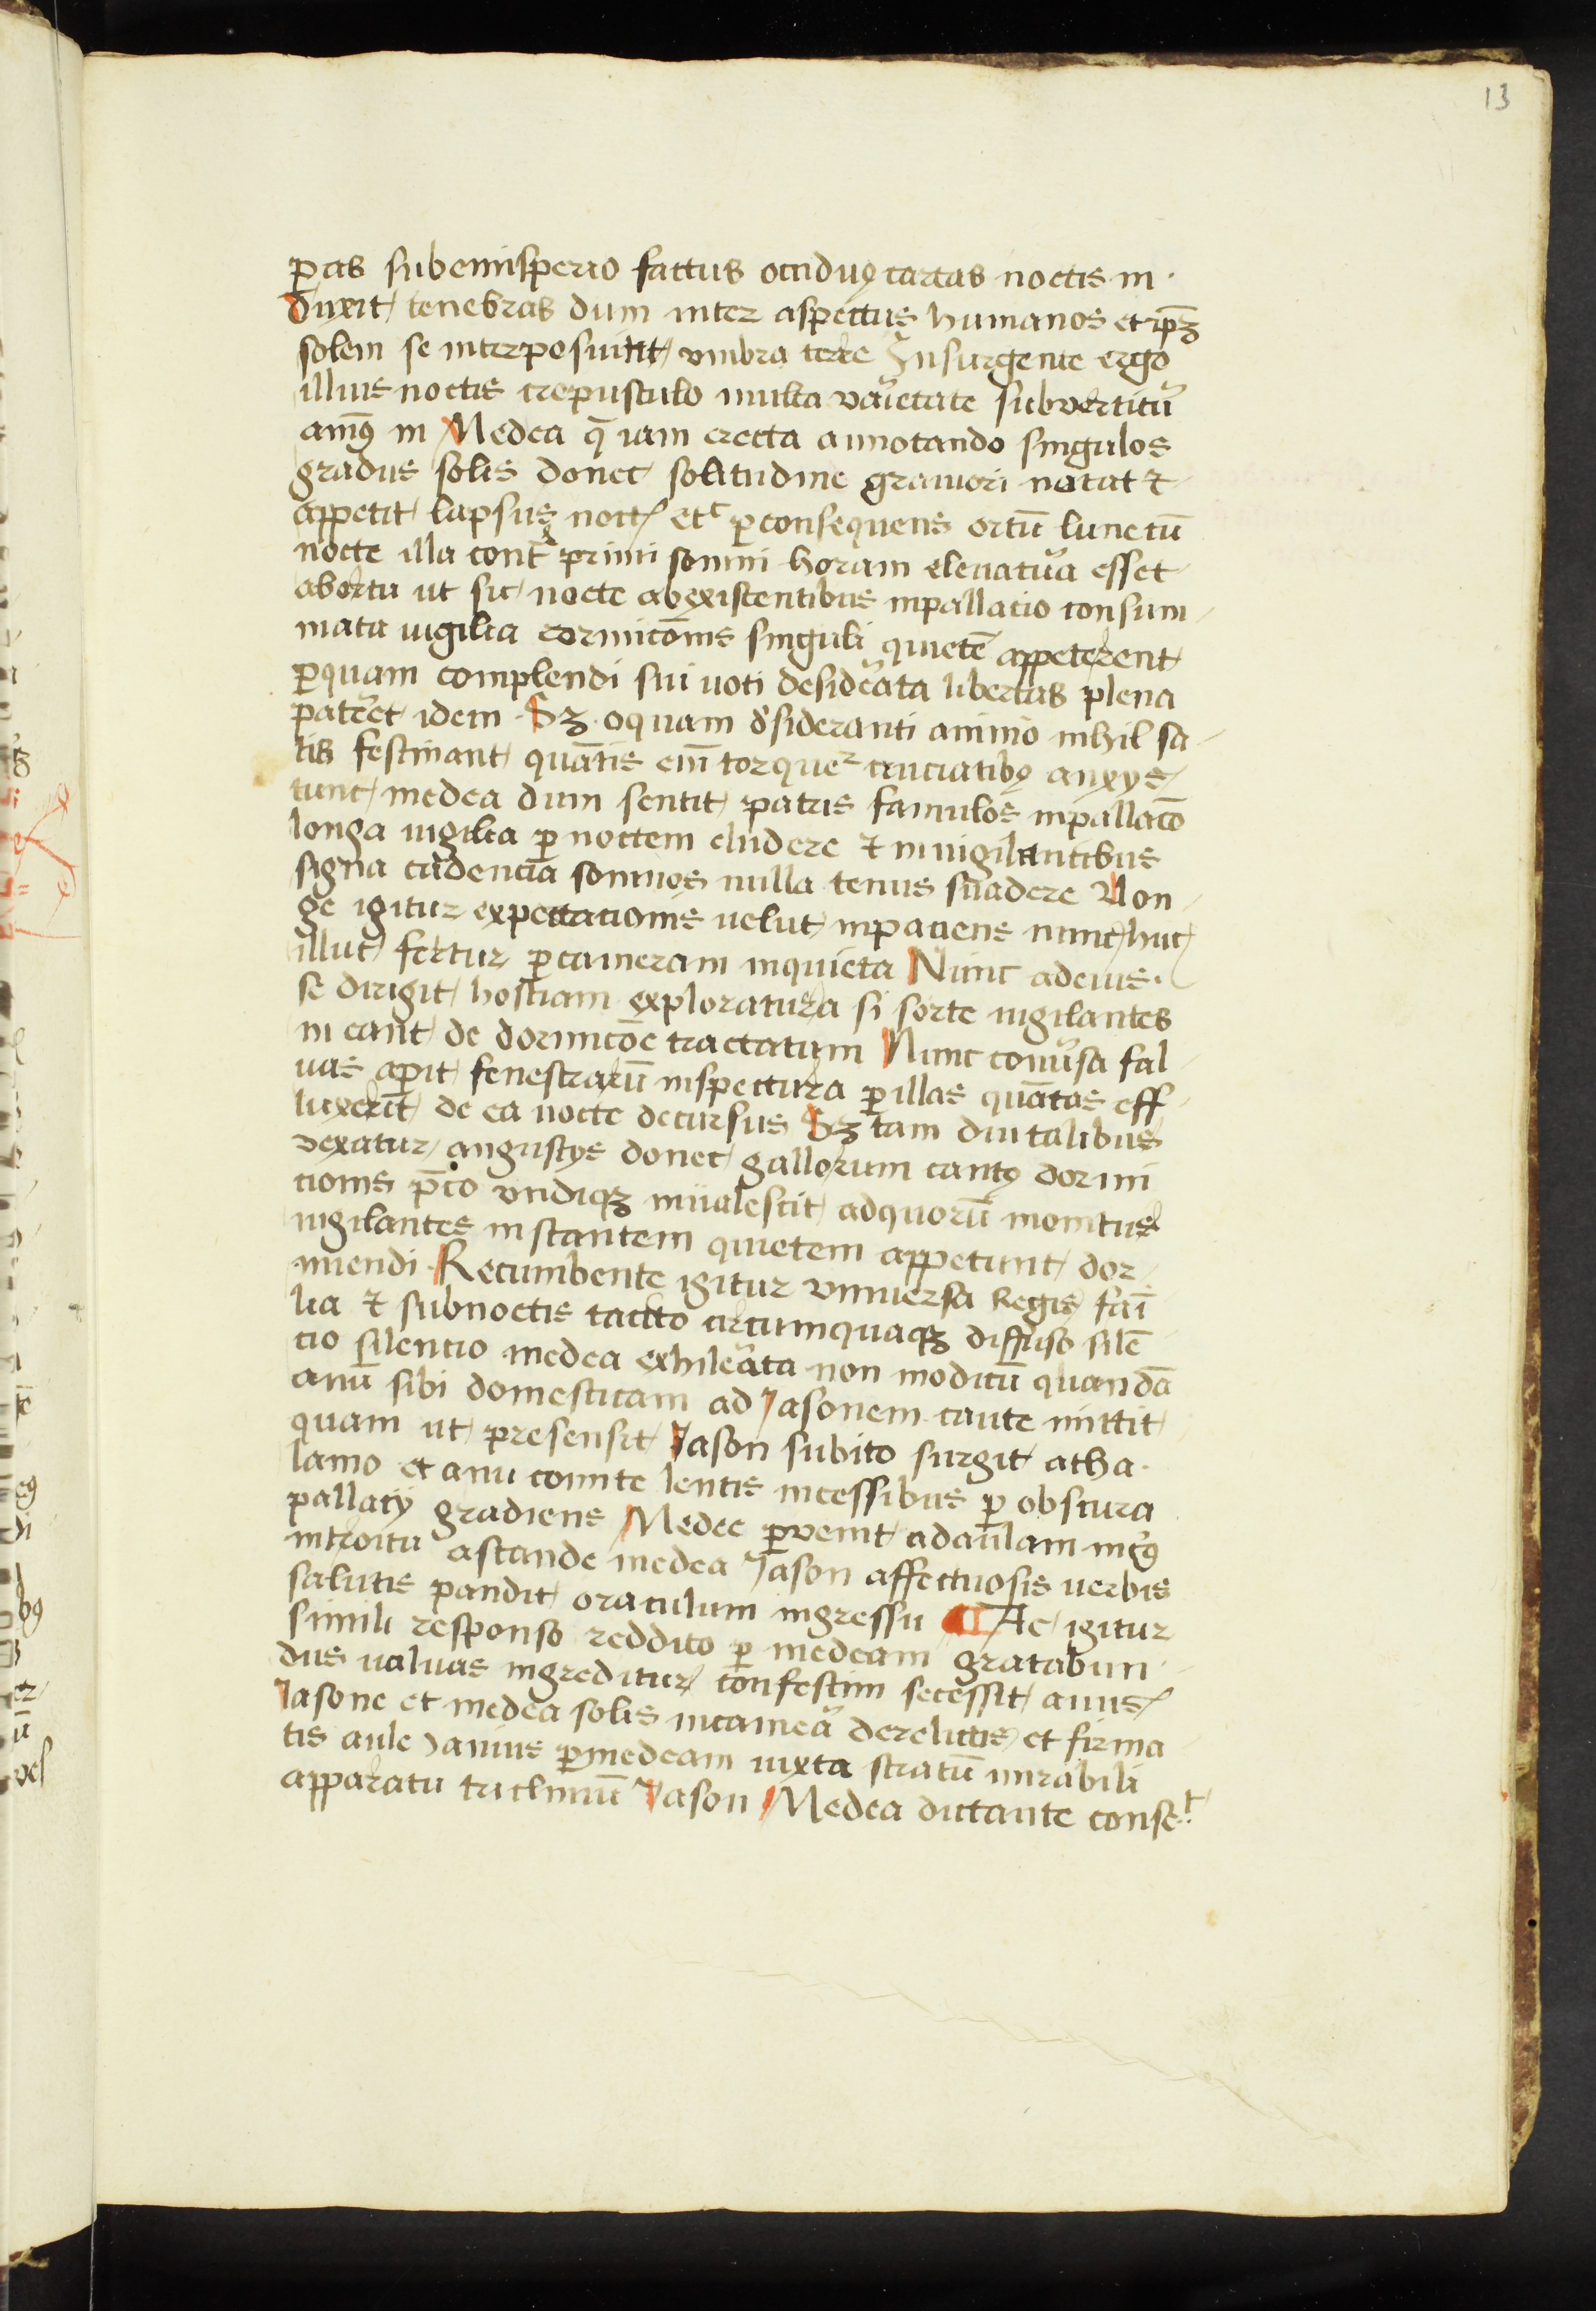 13
ꝑas sub emisperio factus occiduꝯ cartas noctis in-
duxit tenebras dum inter aspectus humanos et ipꝫ
solem se interposuiut vmbra terre Insurgente ergo
illius noctis crepusculo multa vaꝛietate subvertitur̃
animꝯ in Medea q̄ iam erecta annotando singulos
gradus solis donec solitudine grauiori notat ⁊
appetit lapsus noctꝭ etc ꝑ consequens ortū lune cū
nocte illa contᵃ primi somni horam eleuatuᵃ esset
ab ortu ut sic nocte ab existentibus in pallacio consum-
mata uigilia dormicōnis singuli quietē appeterent
ꝑ quam complendi sui uoti desideᵃta libertas plena
pateret idem Sꝫ o quam dʼsideranti animo nihil sa-
tis festinant quātis enī torqueꝛ cruciatibꝯ anxys
tunc medea dum sentit patris famulos in pallacō
longa uigilia ꝑ noctem eludere ⁊ in uigilantibus
signa cadencia somnos nulla tenus suadere Non-
ge igitur expectationis velut inpatiens nunc huc
illuc fertur ꝑ cameram inquieta Nunc ad eius
se dirigit hostiam exploratura si sorte uigilantes
in eant de dormicōe tractatum Nunc conuʼsa fal-
uas aꝑit fenestrarū inspectura ꝑ illas quātas eff-
luxerīt de ea nocte decursus Sꝫ tam diu talibus
vexatur angustys donec gallorum cantꝯ dormi
tionis p̄co vndiqꝫ inualescit ad quorū monitus
uigilantes instantem quietem appetunt dor-
miendi Recumbente igitur vniuersa Regis fāi-
lia ⁊ sub noctis tacito circumquaqꝫ diffuso silē
cio silentio medea exhileᵃta non modicū quandā
anū sibi domesticam ad Jasonem caute mittit
quam ut presensit Jason subito surgit a tha-
lamo et anu comite lentis incessibus ꝑ obscura
pallacij gradiens Medee ꝑvenit ad aulam in cꝰ
introitu astande medea Jason affectuosis uerbis
salutis pandit oraculum ingressu Ac igitur
simili responso reddito ꝑ medeam gratabun-
dus ualuas ingreditur confestim secessit anus
Jasone et medea solis in cameᵃ derelictis et firma-
tis aule Januis ꝑ medeam iuxta stratū mirabili
apparatu tricliniū Jason Medea dictante conse.t